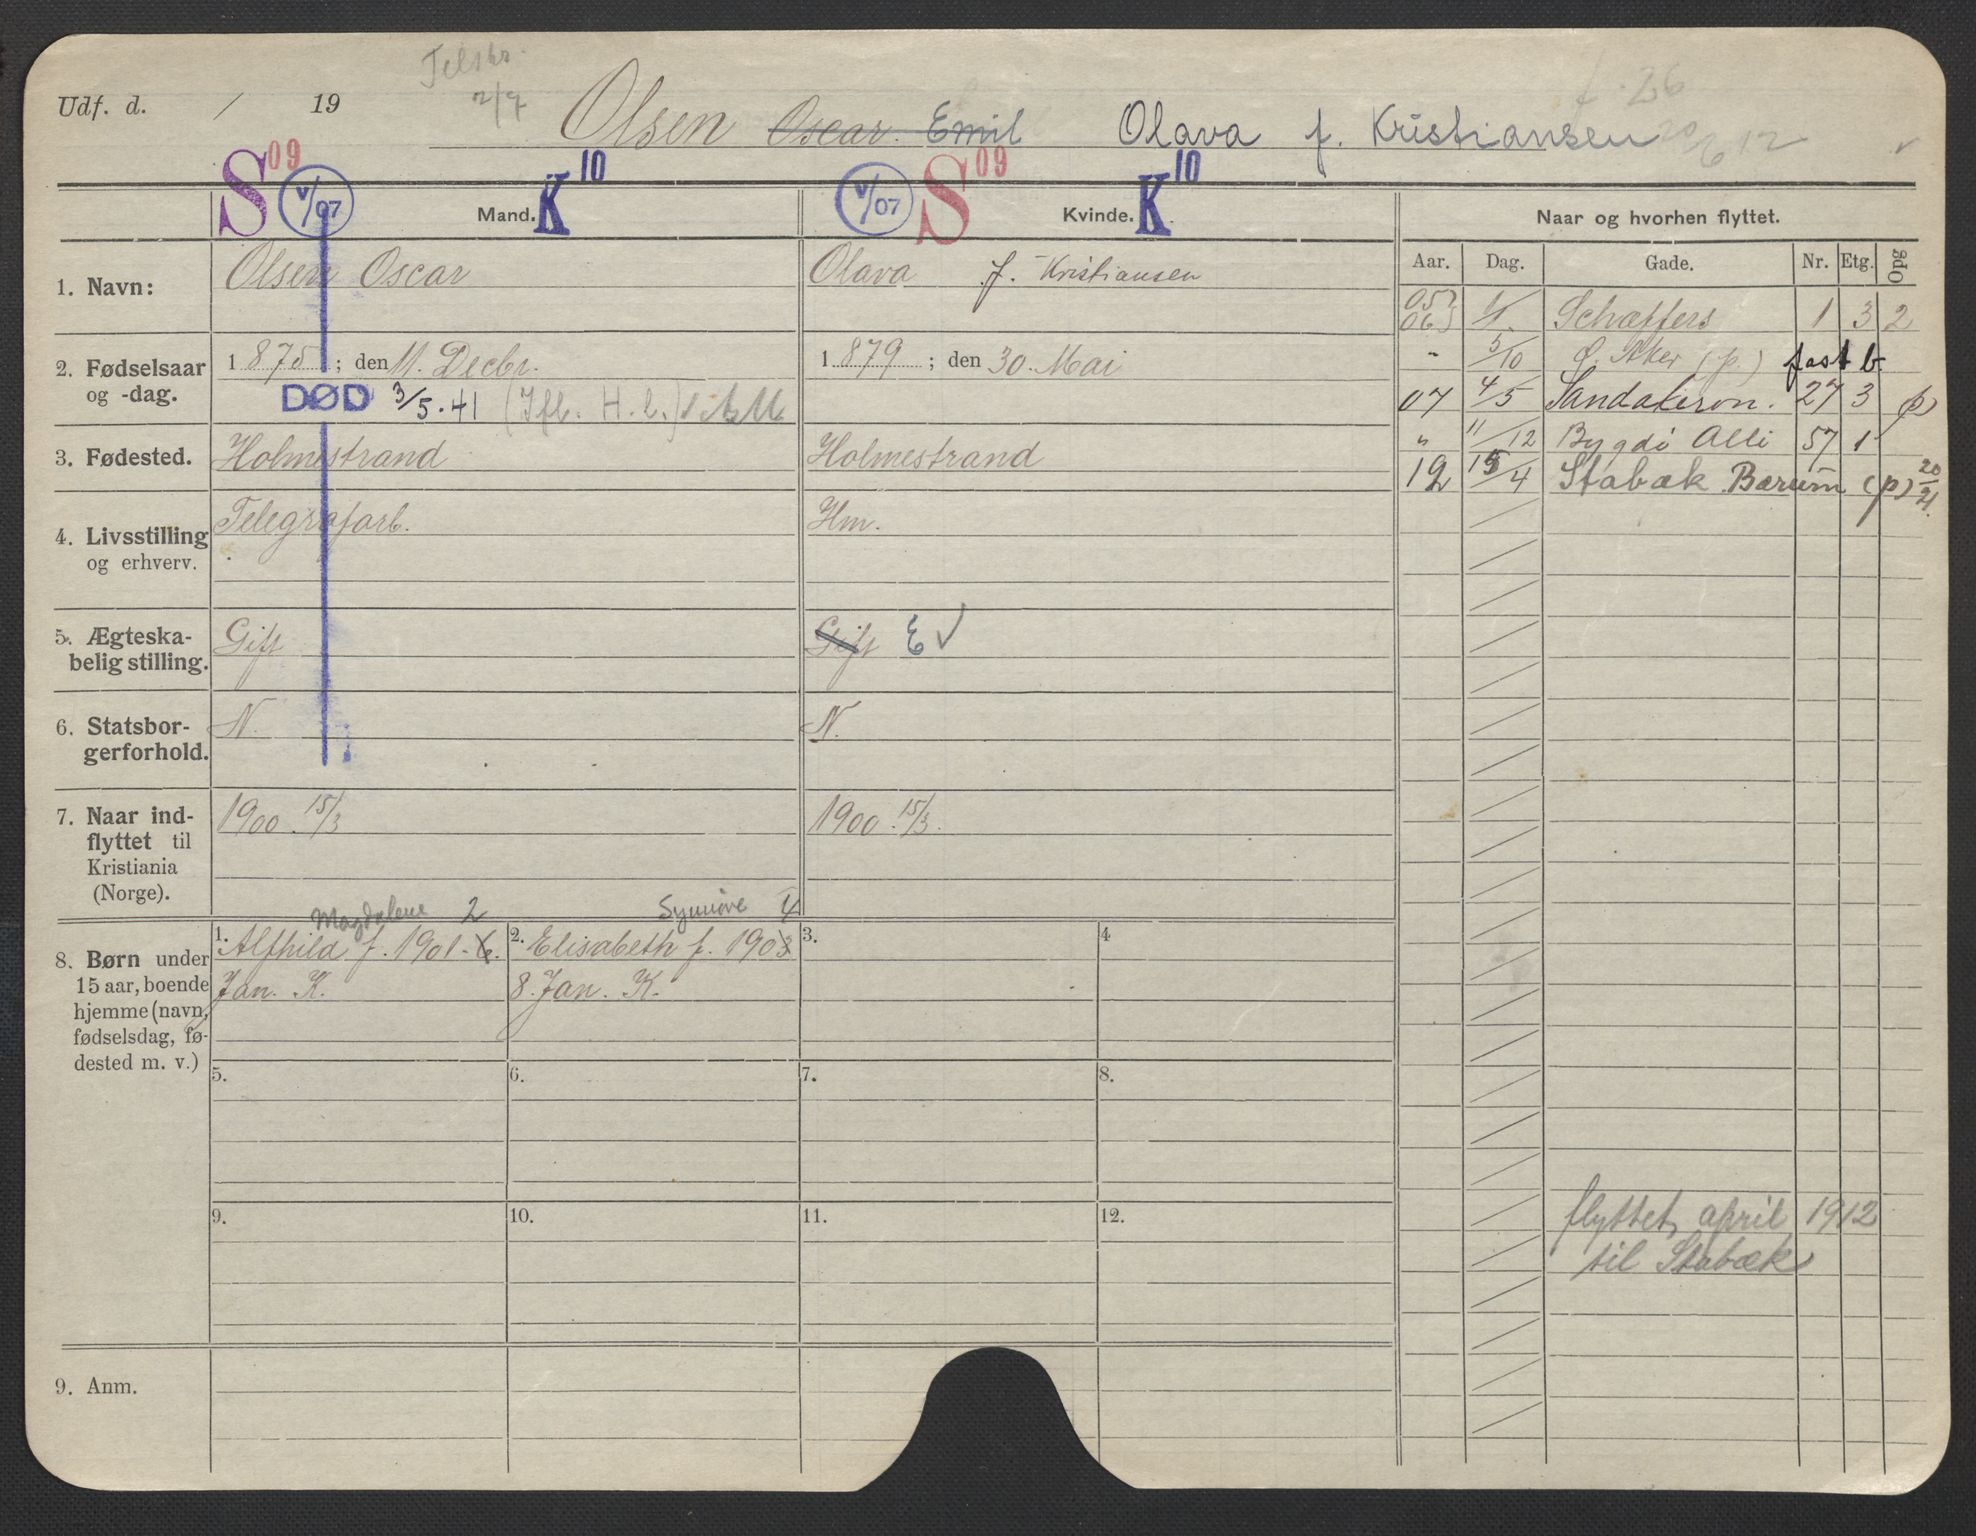 Telskr.
2/7
Udf. d. / 19
Olsen Oscar Emil Olava f. Kristiansen
S 09 V/07 Mand. K 10
V/07 S 09 Kvinde. K 10
Naar og hvorhen flyttet.
Aar. Dag. Gade. Nr. Etg. Opg
1. Navn:
Olsen Oscar
Olava f. Kristiansen
2. Fødselsaar
og -dag.
1875; den 11. Decbr.
DØD 3/5.41
1879; den 30. Mai
3. Fødested.
Holmestrand
Holmestrand
4. Livsstilling
og erhverv.
Telegrafarb.
Hm.
5. Ægteska-
belig stilling.
Gift
Gift E
6. Statsbor-
gerforhold.
N.
N.
7. Naar ind-
flyttet til
Kristiania
(Norge).
1900. 15/3
1900. 15/3.
8. Børn under
15 aar, boende
hjemme (navn,
fødselsdag, fø-
dested m. v.)
Magdalene 2
1. Alfhild f. 1901-6.
Jan. K.
Synnøve 4
2. Elisabeth f. 1903
8. Jan. K.
3.
4
5.
6.
7.
8.
9.
10.
11.
12.
9. Anm.
05 06 1/1. Schæffers 1 3 2
" 5/10 Ø. Aker (p.) fast b.
07 4/5 Sandakervn. 27 3 (p)
" 11/12 Bygdø Alle 57 1
12 15/4 Stabæk Bærum (p) 20/21.
flyttet, april 1912
til Stabæk